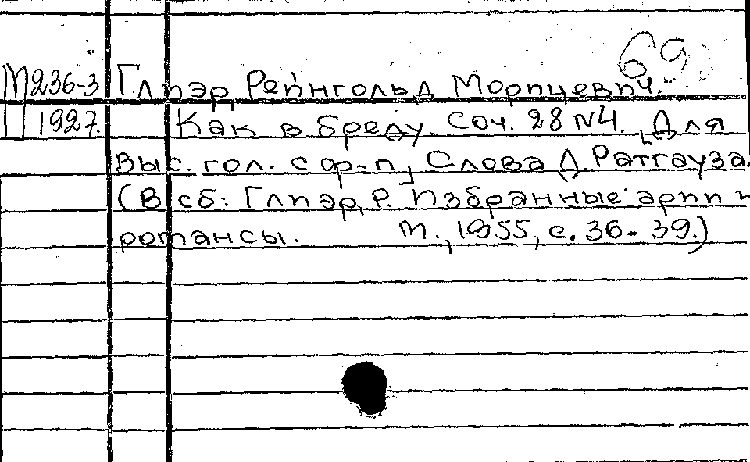 69
М236-3 Глиэр, Рейнгольд Морицевич.
1927. Как в бреду. Соч. 28 №4. [Для
выс. гол. с ф-п], Слова Д. Ратгауза.
(В сб: Глиэр, Р. Избранные арии и
романсы. М., 1955, с. 36-39.)